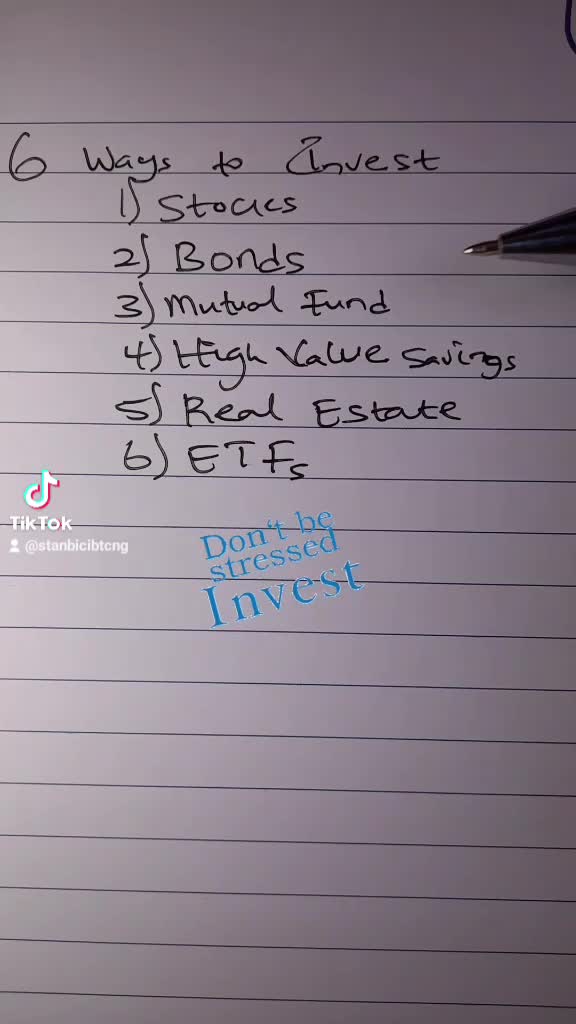 6 Ways to Invest
1) Stocks
2) Bonds
3) Mutual Fund
4) High Value Savings
5) Real Estate
6) ETFs
TikTok
@stanbicibtcng
Don't be
stressed
Invest